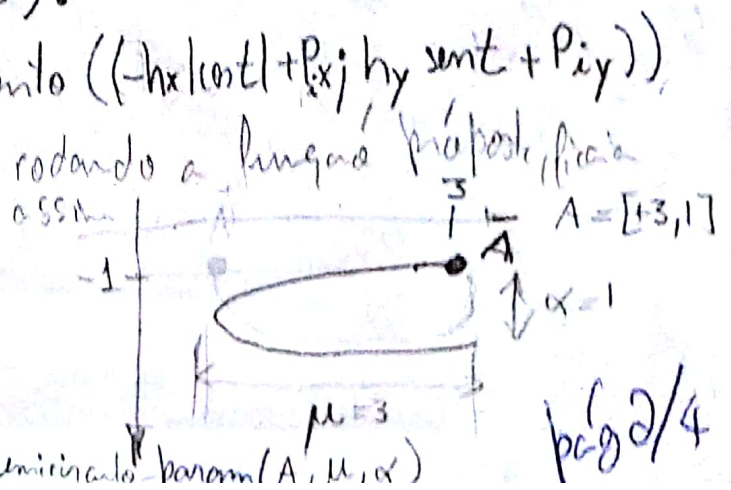 ((-hx|cost|+Pix; hy sent + Piy))
rodando a função proposta, ficaria
assim
3
A = [+3,1]
A
-1
α=1
μ=3
pág 2/4
param(A, μ, α)